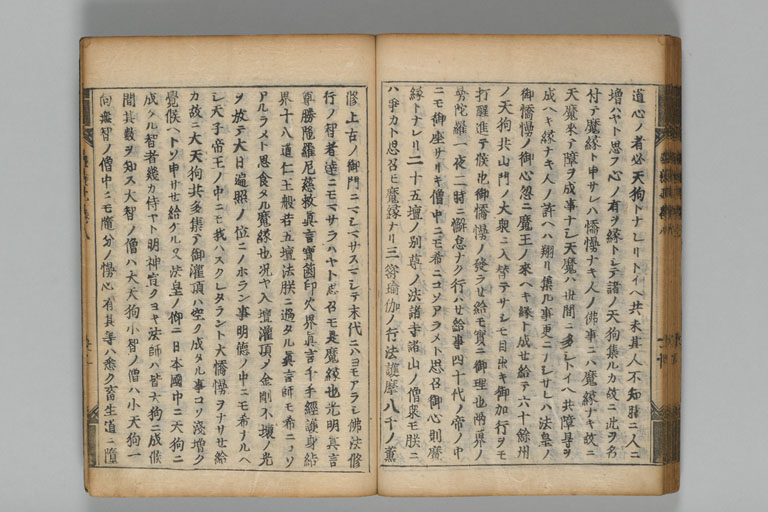 道心ノ者必天狗トナレリトイヘ共未其人不知メ人ニ
増ハヤト思フ心ノ有ヲ縁トシテ諸ノ天狗集ルカ故ニ此ヲ名
付テ魔縁ト申サレハ憍慢ナキ人ノ佛事ニハ魔縁ナキ故ニ
天魔來テ障ヲ成事ナシ天魔ハ世間ニ多シトイヘ共障㝵ヲ
成ヘキ縁ナキ人ノ許ヘハ翔リ集ル事更ニナシサレハ法皇ノ
御憍慢ノ御心忽ニ魔王ノ來ヘキ縁ト成セ給テ六十餘州
ノ天狗共山門ノ大衆ニ入替テサシモ目出キ御加行ヲモ
打醒進テ候也御憍慢ノ發ラセ給モ實ニ御理也兩界ノ
曼陀羅一夜二時ニ懈怠ナク行ハセ給事四十代ノ帝ノ中
ニモ御座サリキ僧中ニモ希ニコソアラメト思召御心則魔
縁トナレリ二十五壇ノ別尊ノ法諸寺諸山ノ僧衆モ朕ニ
ハ爭カト思召モ魔縁ナリ三密瑜伽ノ行法護摩八千ノ薫
修上古ノ御門ニマシマサスマシテ末代ニハヨモアラシ佛法修
行ノ智者達ニモマサラハヤト思召モ是魔縁也光明眞言
尊勝陀羅尼慈救眞言寶篋印火界眞言千手經護身結
界十八道仁王般若五壇法朕ニ過タル眞言師モ希ニコソ
アルラメト思食タル魔縁也况ヤ入壇灌頂ノ金剛不壞ノ光
ヲ放テ大日遍照ノ位ニノホラン事明德ノ中ニモ希ナルヘ
シ天子帝王ノ中ニモ我ハスクレタラント大憍慢ヲナサセ給
カ故ニ大天狗共多集テ御灌頂ハ空ク成タル事コソ淺增ク
覺候ヘトソ申サセ給ケル又法皇ノ仰ニ日本國中ニ天狗ニ
成タル智者幾カ侍ヤト明神言クヨキ法師ハ皆天狗ニ成候
間其數ヲ知ス大智ノ僧ハ大天狗小智ノ僧ハ小天狗一
向無智ノ僧中ニモ隨分ノ慢心有其等ハ悉ク畜生道ニ墮